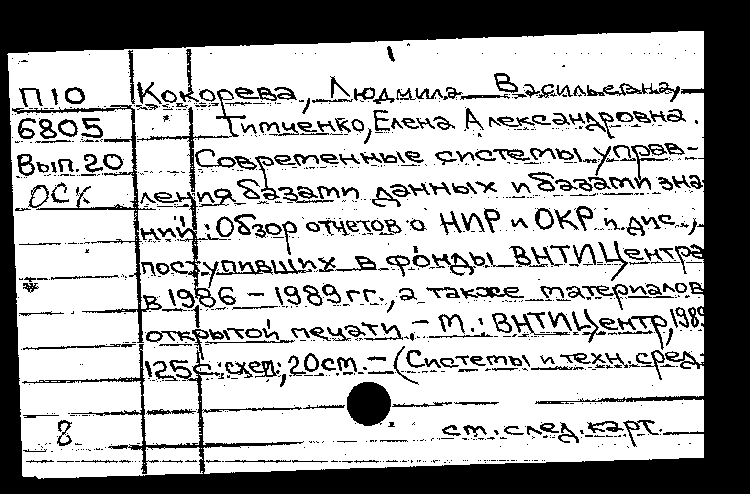 П10 Кокорева, Людмила Васильевна,
6805 Титченко, Елена Александровна.
Вып.20 Современные системы управ-
ОСК ления базами данных и базами зна
ний: Обзор отчетов о НИР и ОКР и дис.,
поступивших в фонды ВНТИЦентра
в 1986 - 1989 гг., а также материалов
открытой печати. - М.: ВНТИЦентр, 1989
125с.: схем.; 20 см. - (Системы и техн. сред-
8 см. след. карт.